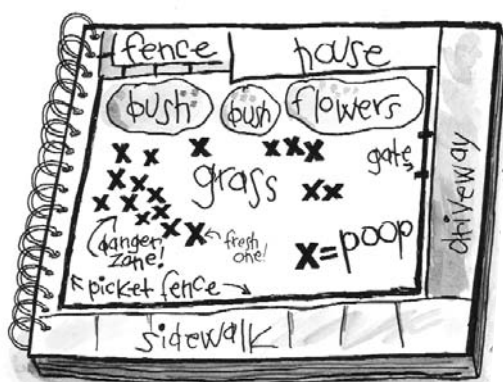 fence
house
bush
bush
flowers
x x x x x x
gate
grass
x x x x x
x x x x
x x
danger zone!
fresh one!
x = poop
picket fence
driveway
sidewalk